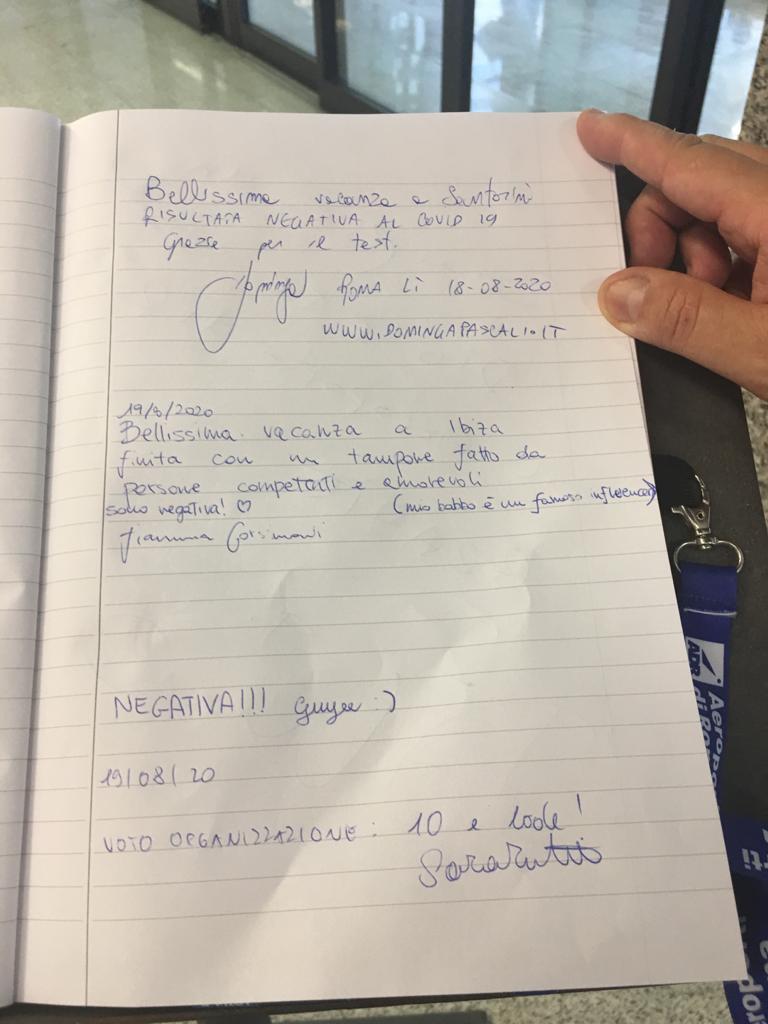 Bellissima vacanza a Santorini
RISULTATA NEGATIVA AL COVID 19
Grazie per il test.
ROMA LÌ 18-08-2020
WWW.DOMINGAPASCALI.IT
19/8/2020
Bellissima vacanza a Ibiza
finita con un tampone fatto da
persone competenti e amorevoli
sono negativa! ♡ (mio babbo è un famoso influencer)
NEGATIVA!!! :)
19/08/20
VOTO ORGANIZZAZIONE: 10 e lode!
ADR Aeroporti
di Roma